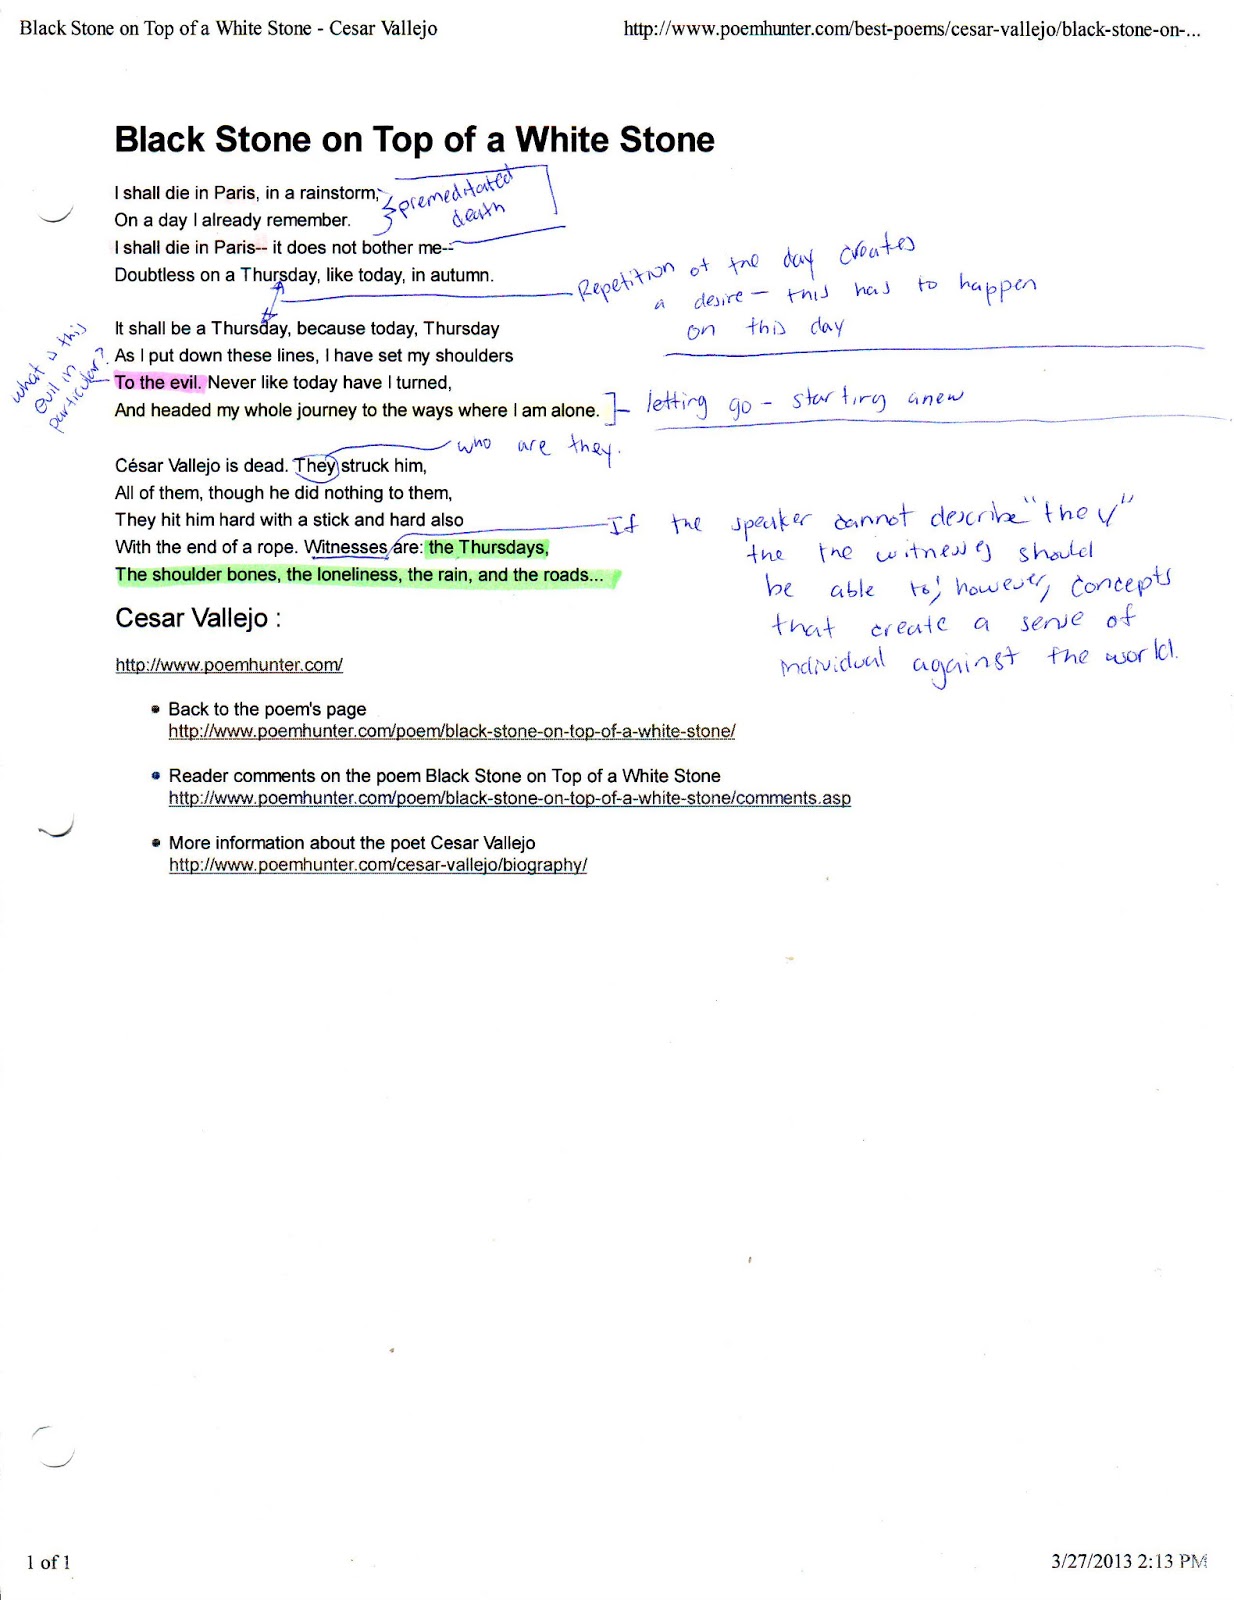 Black Stone on Top of a White Stone - Cesar Vallejo
http://www.poemhunter.com/best-poems/cesar-vallejo/black-stone-on-...
Black Stone on Top of a White Stone
I shall die in Paris, in a rainstorm,
On a day I already remember.
premeditated
death
I shall die in Paris-- it does not bother me--
Doubtless on a Thursday, like today, in autumn.
Repetition of the day creates
a desire - this has to happen
on this day
It shall be a Thursday, because today, Thursday
As I put down these lines, I have set my shoulders
To the evil. Never like today have I turned,
And headed my whole journey to the ways where I am alone.
what is this
evil in
particular?
letting go - starting anew
who are they.
César Vallejo is dead. They struck him,
All of them, though he did nothing to them,
They hit him hard with a stick and hard also
With the end of a rope. Witnesses are: the Thursdays,
The shoulder bones, the loneliness, the rain, and the roads...
If the speaker cannot describe "they"
the the witnesses should
be able to; however, concepts
that create a sense of
individual against the world.
Cesar Vallejo :
http://www.poemhunter.com/
• Back to the poem's page
http://www.poemhunter.com/poem/black-stone-on-top-of-a-white-stone/
• Reader comments on the poem Black Stone on Top of a White Stone
http://www.poemhunter.com/poem/black-stone-on-top-of-a-white-stone/comments.asp
• More information about the poet Cesar Vallejo
http://www.poemhunter.com/cesar-vallejo/biography/
1 of 1
3/27/2013 2:13 PM